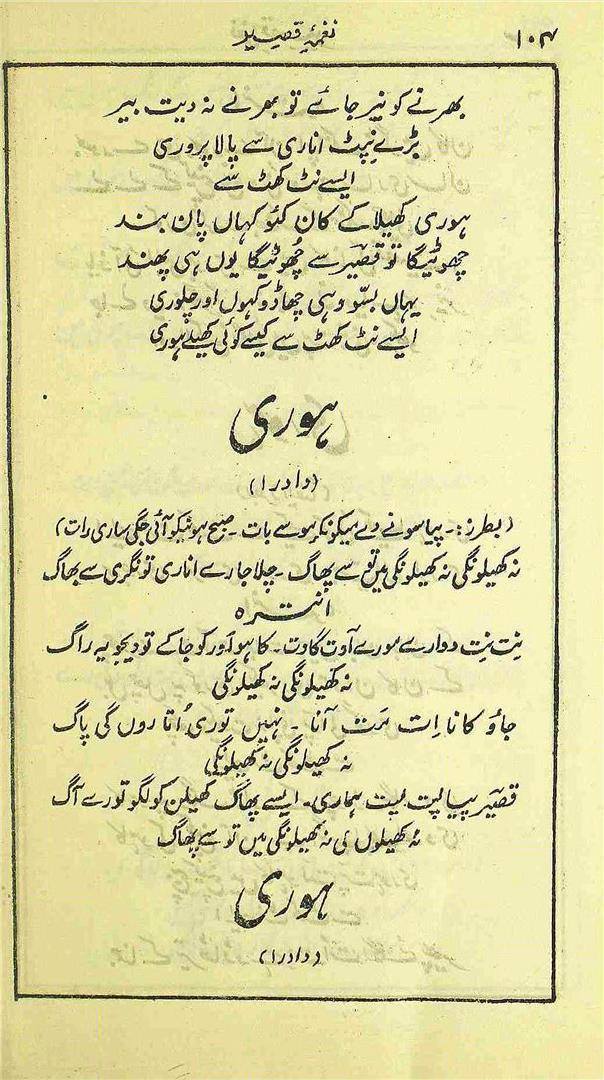 ۱۰۴
نغمۂ قصیر
بھرنے کو نیر جائے تو بھرنے نہ دیت بیر
بڑے نپٹ اناری سے پالا پروری
ایسے نٹ کھٹ سے
ہوری کھیلا کے کان کئو کہاں پان بند
چھوٹیگا تو قصیرؔ سے چُھوٹیگا یوں ہی پھند
یہاں بسّو وہی چھاڈو کہوں اور چلوری
ایسے نٹ کھٹ سے کیسے کوئی کھیلے ہوری
ہوری
(دادرا)
(بطرز:۔ پیا سونے دے ہیکو نکر ہو سے بات ۔ صبح ہوئیکو آئی جگی ساری رات)
نہ کھیلونگی نہ کھیلونگی میں تو سے پھاگ ۔ چلا جارے اناری تو نگری سے بھاگ
انترہ
نِت نِت دوارے مورے آوت گاوت ۔ کاہو اَور کو جاکے تو دیجو یہ راگ
نہ کھیلونگی نہ کھیلونگی
جاؤ کانا اِت مَت آنا ۔ نہیں توری اُتاروں گی پاگ
نہ کھیلونگی نہ کھیلونگی
قصیرؔ پیا پت لیت ہماری ۔ ایسے پھاگ کھیلن کو لگو تورے آگ
نہ کھیلوں گی نہ کھیلونگی میں تو سے پھاگ
ہوری
(دادرا)